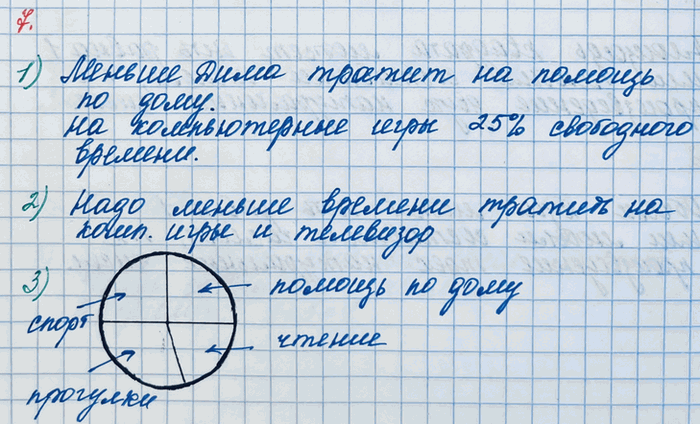 7.
1) Меньше Дима тратит на помощь
по дому.
На компьютерные игры 25% свободного
времени.
2) Надо меньше времени тратить на
комп. игры и телевизор
3)
помощь по дому
спорт
чтение
прогулки